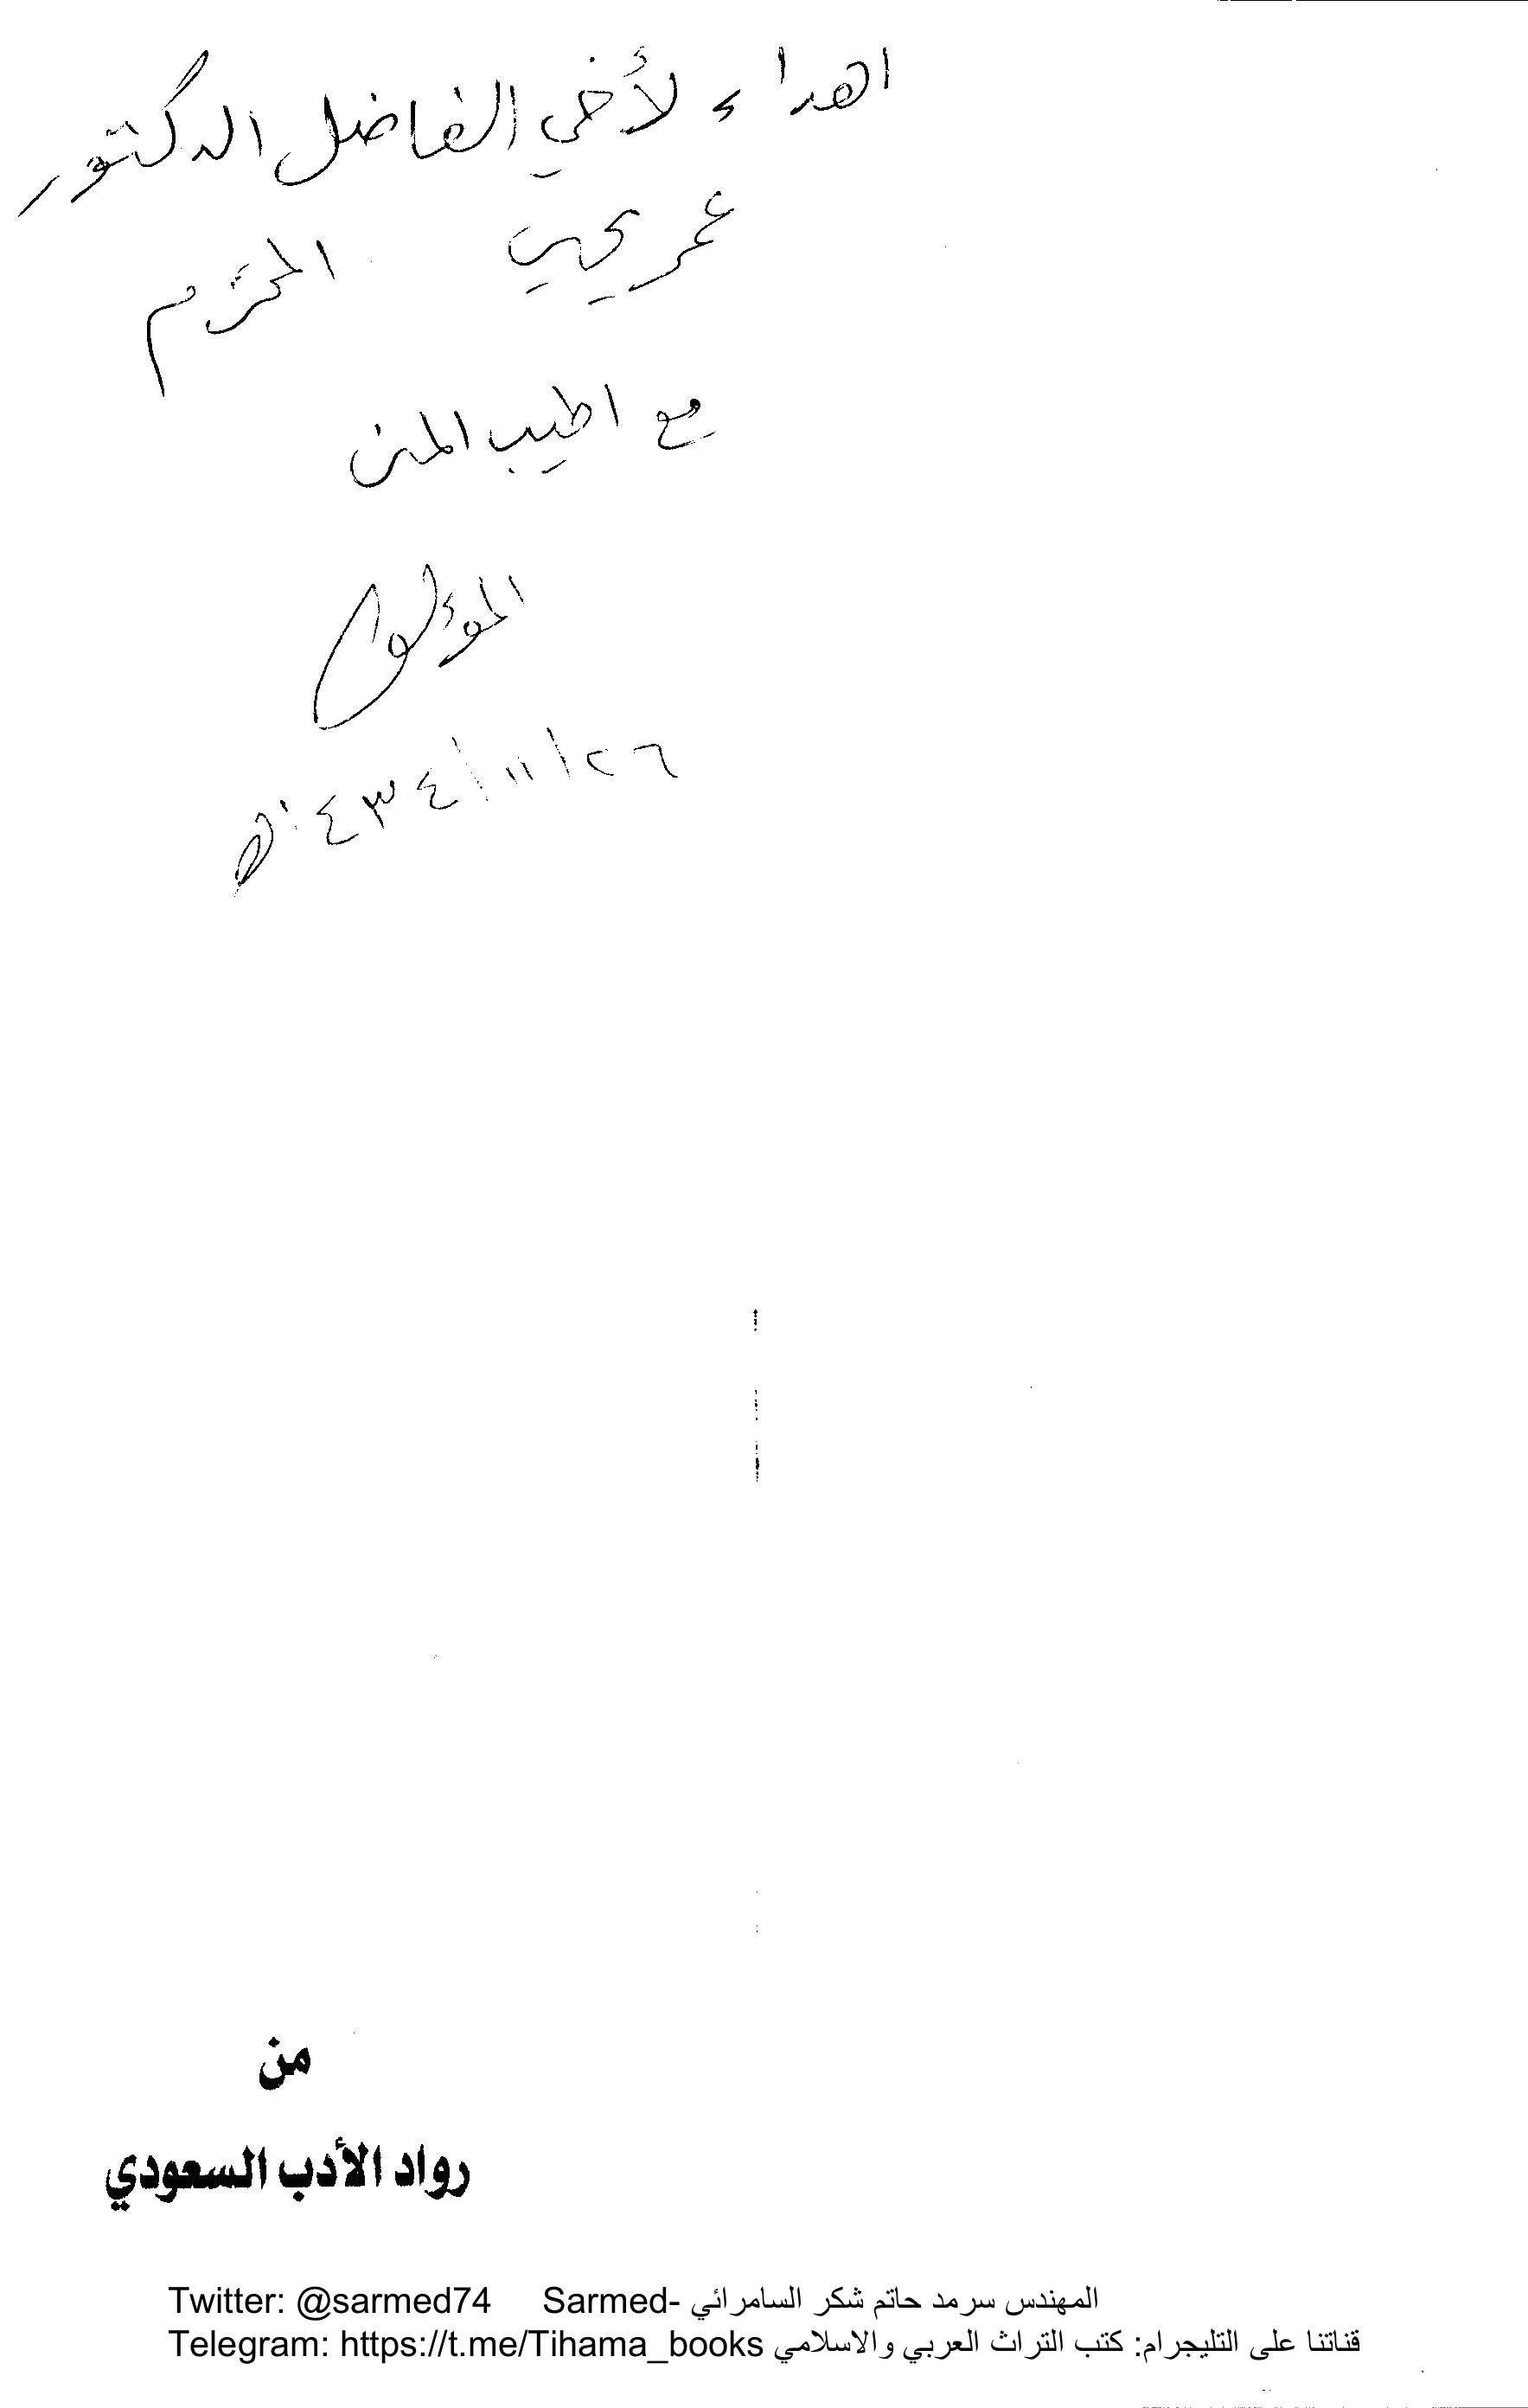 اهداء لأخي الفاضل الدكتور
عمر يحيى المحترم
مع اطيب المنى
المؤلف
٢٦/١١/١٤٣٤هـ
من
رواد الأدب السعودي
Twitter: @sarmed74 Sarmed- المهندس سرمد حاتم شكر السامرائي
Telegram: https://t.me/Tihama_books قناتنا على التليجرام: كتب التراث العربي والاسلامي